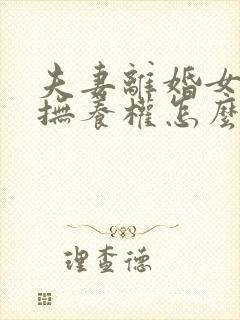 夫妻離婚女
撫養權怎麼
理查德